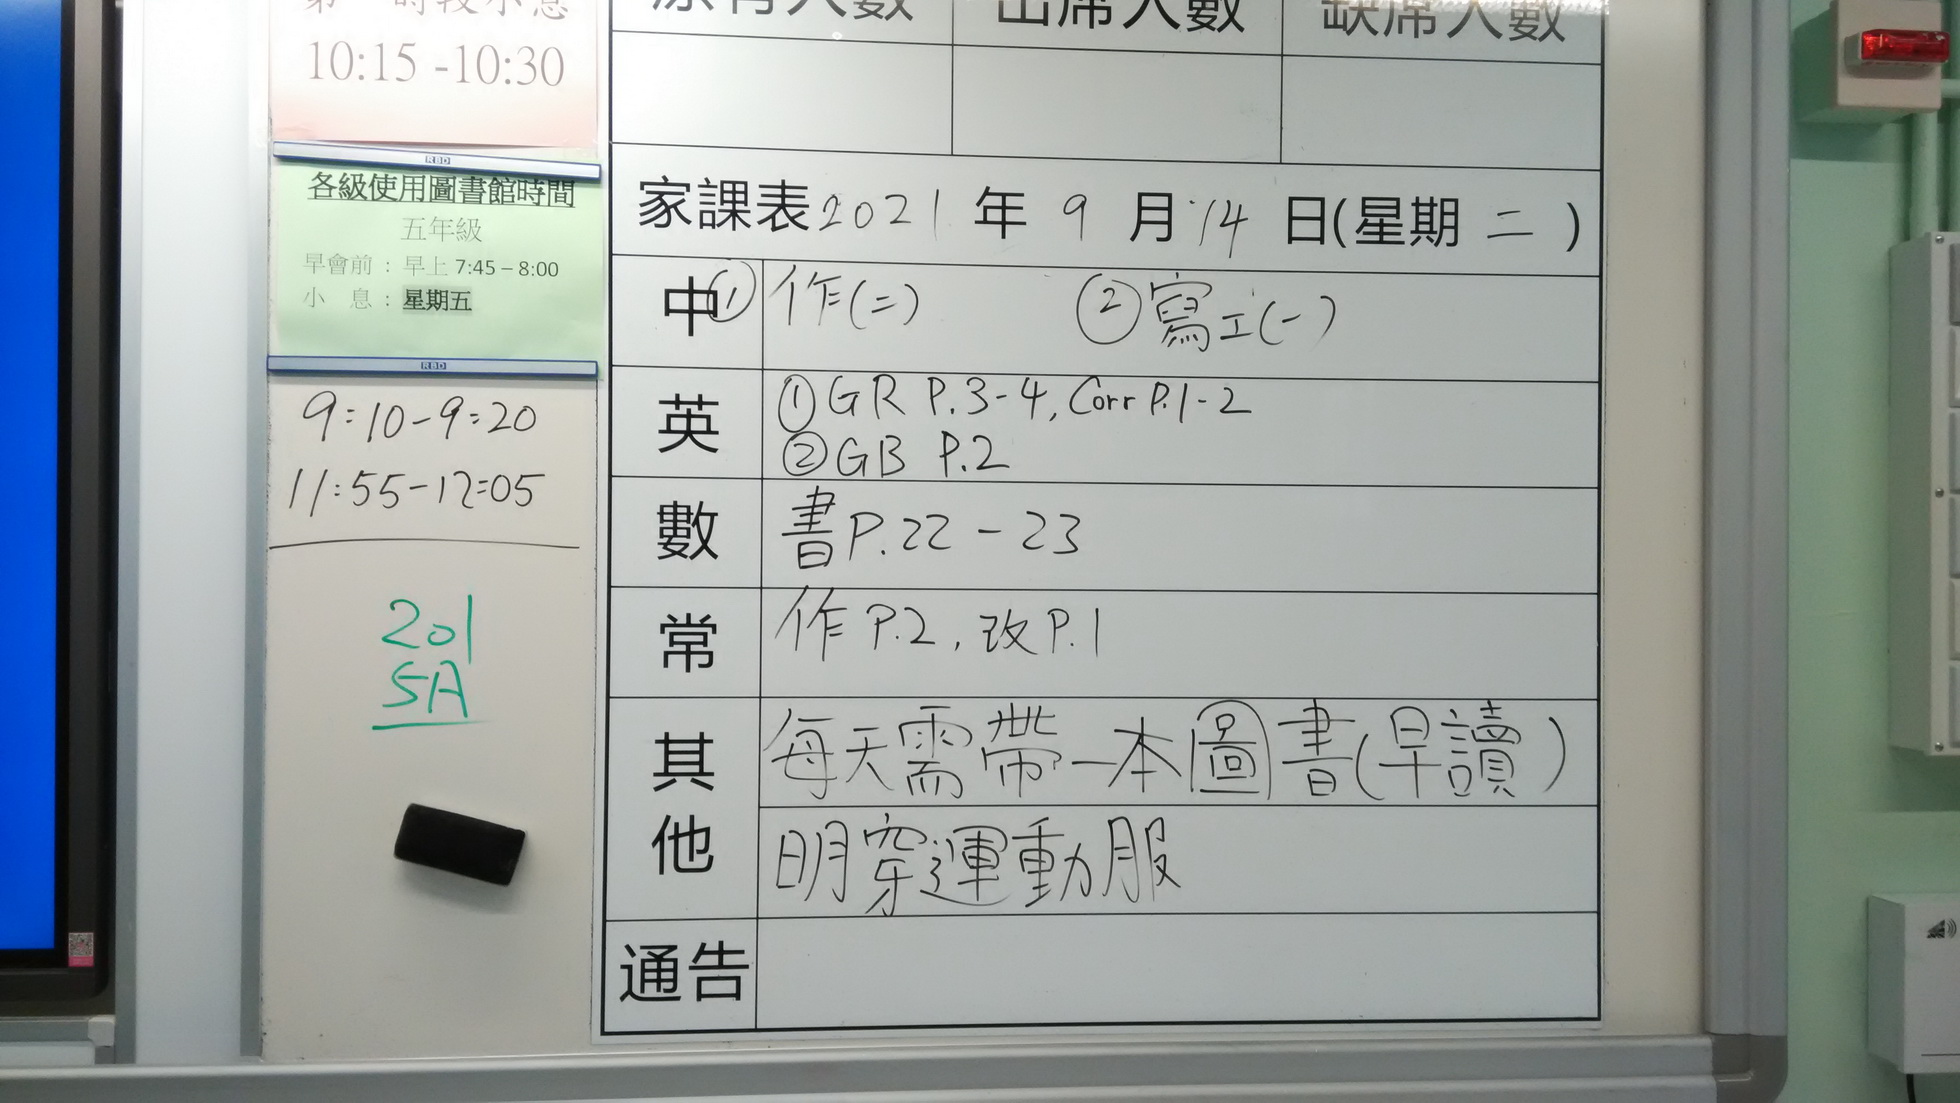 第一時段小息
10:15 -10:30
RBD
各級使用圖書館時間
五年級
早會前 : 早上 7:45 – 8:00
小 息 : 星期五
RBD
9:10-9:20
11:55-12:05
201
5A
原有人數 出席人數 缺席人數
家課表 2021 年 9 月 14 日(星期 二 )
中 ① 作(二) ② 寫工(一)
英 ① GR P.3-4, Corr P.1-2
② GB P.2
數 書 P.22 - 23
常 作 P.2, 改 P.1
其他 每天需帶一本圖書(早讀)
明穿運動服
通告